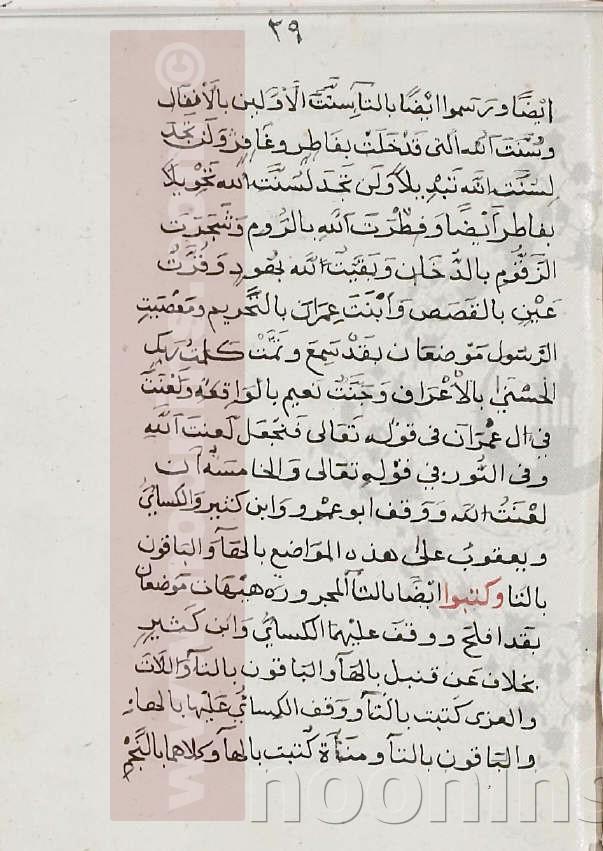 ٣٩
ايضًا ورسموا ايضًا بالتآ سنَّتَ الاوّلين بالأنفال
وسُنَّتَ الله التى قد خلَتْ بفاطر وغافر ولن تجد
لسنَّت الله تبديلًا ولن تجدَ لسُنَّت الله تحويلًا
بفاطر أيضًا وفِطْرَتَ اللهِ بالرُوم وشَجَرَت
الزَّقُّومِ بالدُّخان وبقيَّتُ الله بهُودٍ وقُرَّتُ
عَيْنٍ بالقصَص وأبْنَتَ عِمرَان بالتَّحريم ومَعْصيتِ
الرّسُول موضعان بقد سمعَ وتَمَّتْ كلمتُ ربّك
الحُسْنَى بالأعْراف وجَنَّتُ نعيم بالواقعه ولَعْنَتَ
في ال عمْران فى قوله تعَالى فنجعَل لَّعنتَ اللهِ
وفى النُّور في قوله تعالى والخامسَةُ أن
لعْنَتُ الله ووقف ابو عمْرو وابن كثير والكسائيُّ
ويعقوبُ على هذه المواضِع بالهآ والبَاقون
بالتا وكتبوا ايضًا بالتآ المجرورة هيْهَاتَ موْضعان
بقد افلح ووقفَ عليْهمَا الكسائيُّ وابن كَثير
بخلاف عَن قنبل بالهآ والبَاقون بالتآ واللاتَ
والعزى كتبت بالتآ ووقف الكِسائيُّ عَليْها بالهاء
والبَاقون بالتآ ومنَآةَ كتبت بالهآ وكلاهما بالنَّجْم
www.noonins
©
noonins